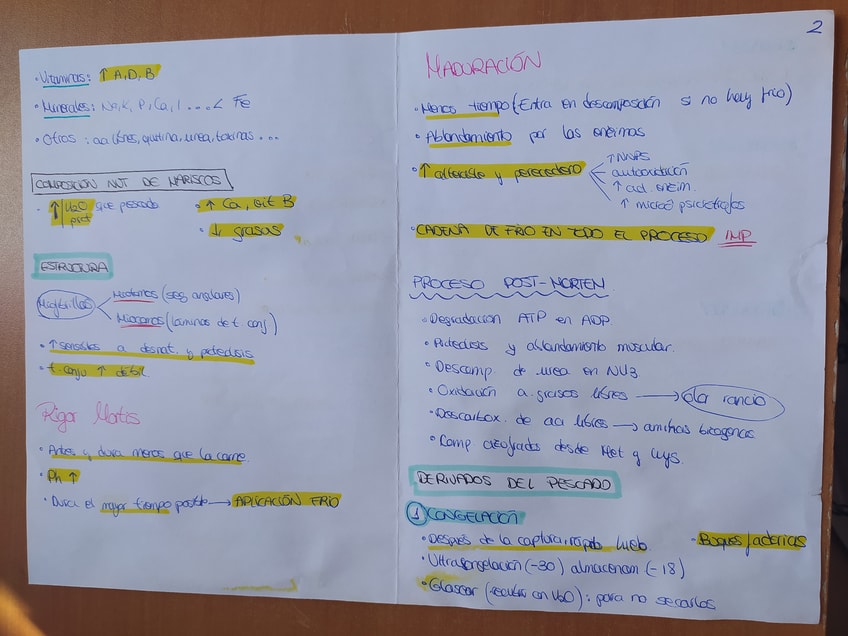 • Vitaminas: ↑ A, D, B
• Minerales: Na, K, P, Ca, I .... < Fe
• Otros: aa libres, quitina, urea, toxinas ...
COMPOSICIÓN NUT DE MARISCOS
• ↑ H2O/prot que pescado
• ↑ Ca, vit B
• ↓ grasas
ESTRUCTURA
Miofibrillas
Miotomos (seg angulares)
Mioconos (laminas de t. conj.)
• ↑ sensibles a desnat. y proteolisis
• t. conju ↑ debil.
Rigor Mortis
• Antes y dura menos que la carne.
• Ph ↑
• Dura el mayor tiempo posible → APLICACIÓN FRÍO
2
MADURACIÓN
• Menos tiempo (Entra en descomposición si no hay frío)
• Ablandamiento por las enzimas
• ↑ alterable y perecedero
↑ NNPS
autooxidación
↑ act. enzim.
↑ microo psicrotrofos
• CADENA DE FRIO EN TODO EL PROCESO IMP
PROCESO POST-MORTEN
• Degradación ATP en ADP.
• Proteolisis y ablandamiento muscular.
• Descomp. de urea en NH3
• Oxidación a. grasos libres → olor rancio
• Descarbox. de aa libres → aminas biogenas
• Comp azufrados desde Met y Cys.
DERIVADOS DEL PESCADO
1 CONGELACIÓN
• Después de la captura, rápido - Buques factorias
• Ultracongelación (-30) almacenam (-18)
• Glasear (recubrir con H2O): para no secarlos